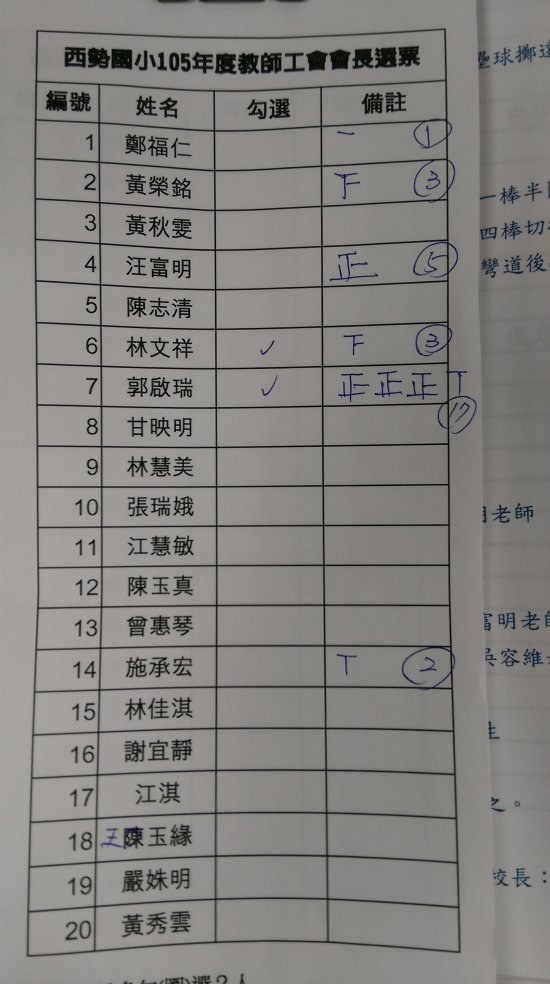 西勢國小105年度教師工會會長選票
編號 姓名 勾選 備註
1 鄭福仁 一 ①
2 黃榮銘 下 ③
3 黃秋雯
4 汪富明 正 ⑤
5 陳志清
6 林文祥 ✓ 下 ③
7 郭啟瑞 ✓ 正正正丅
⑰
8 甘映明
9 林慧美
10 張瑞娥
11 江慧敏
12 陳玉真
13 曾惠琴
14 施承宏 丅 ②
15 林佳淇
16 謝宜靜
17 江淇
18 王陳玉緣
19 嚴姝明
20 黃秀雲
選2人
壘球擲遠
一棒半
四棒切
彎道後
老師
富明老師
吳容維
生
之。
校長：